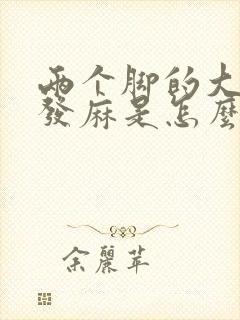 兩个脚的大
發麻是怎麼
余麗苹